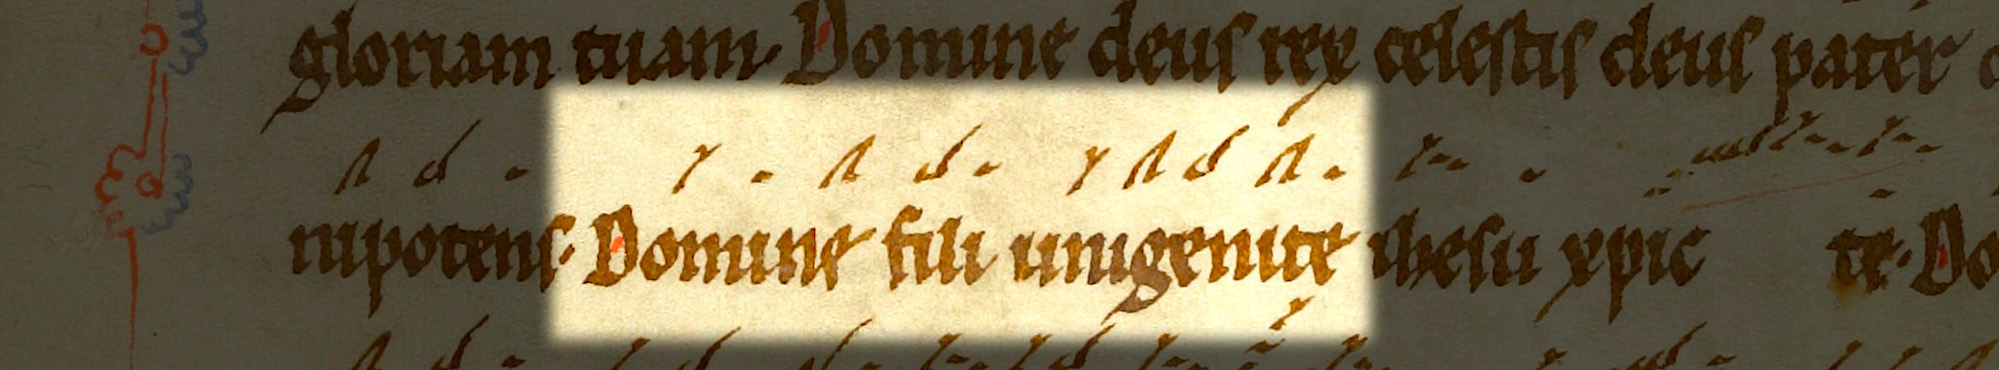 gloriam tuam. Domine deus rex celestis deus pater
nipotens. Domine fili unigenite ihesu xpic te. Do